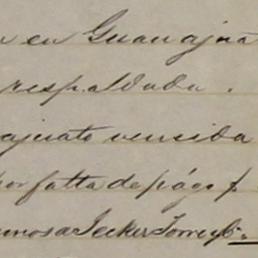 en Guanajua
respaldada.
ajuato vencida
por falta de págo p.
mos a Jecker Torre y Cª.